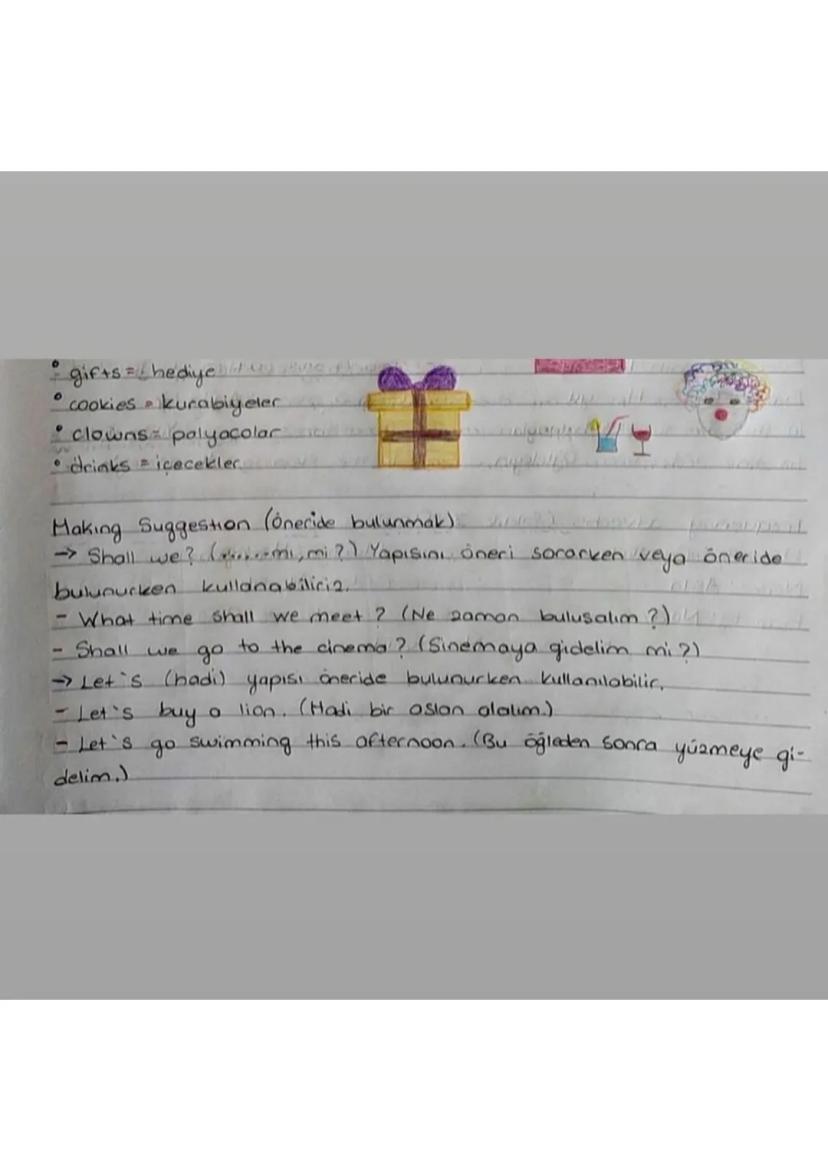 • gifts = hediye
• cookies = kurabiyeler
• clowns = palyaçolar
• drinks = içecekler
Making Suggestion (Öneride bulunmak)
→ Shall we? (.......mı, mi?) Yapısını öneri sorarken veya öneride
bulunurken kullanabiliriz.
- What time shall we meet? (Ne zaman buluşalım?)
- Shall we go to the cinema? (Sinemaya gidelim mi?)
→ Let's (hadi) yapısı öneride bulunurken kullanılabilir.
- Let's buy a lion. (Hadi bir aslan alalım.)
- Let's go swimming this afternoon. (Bu öğleden sonra yüzmeye gi-
delim.)